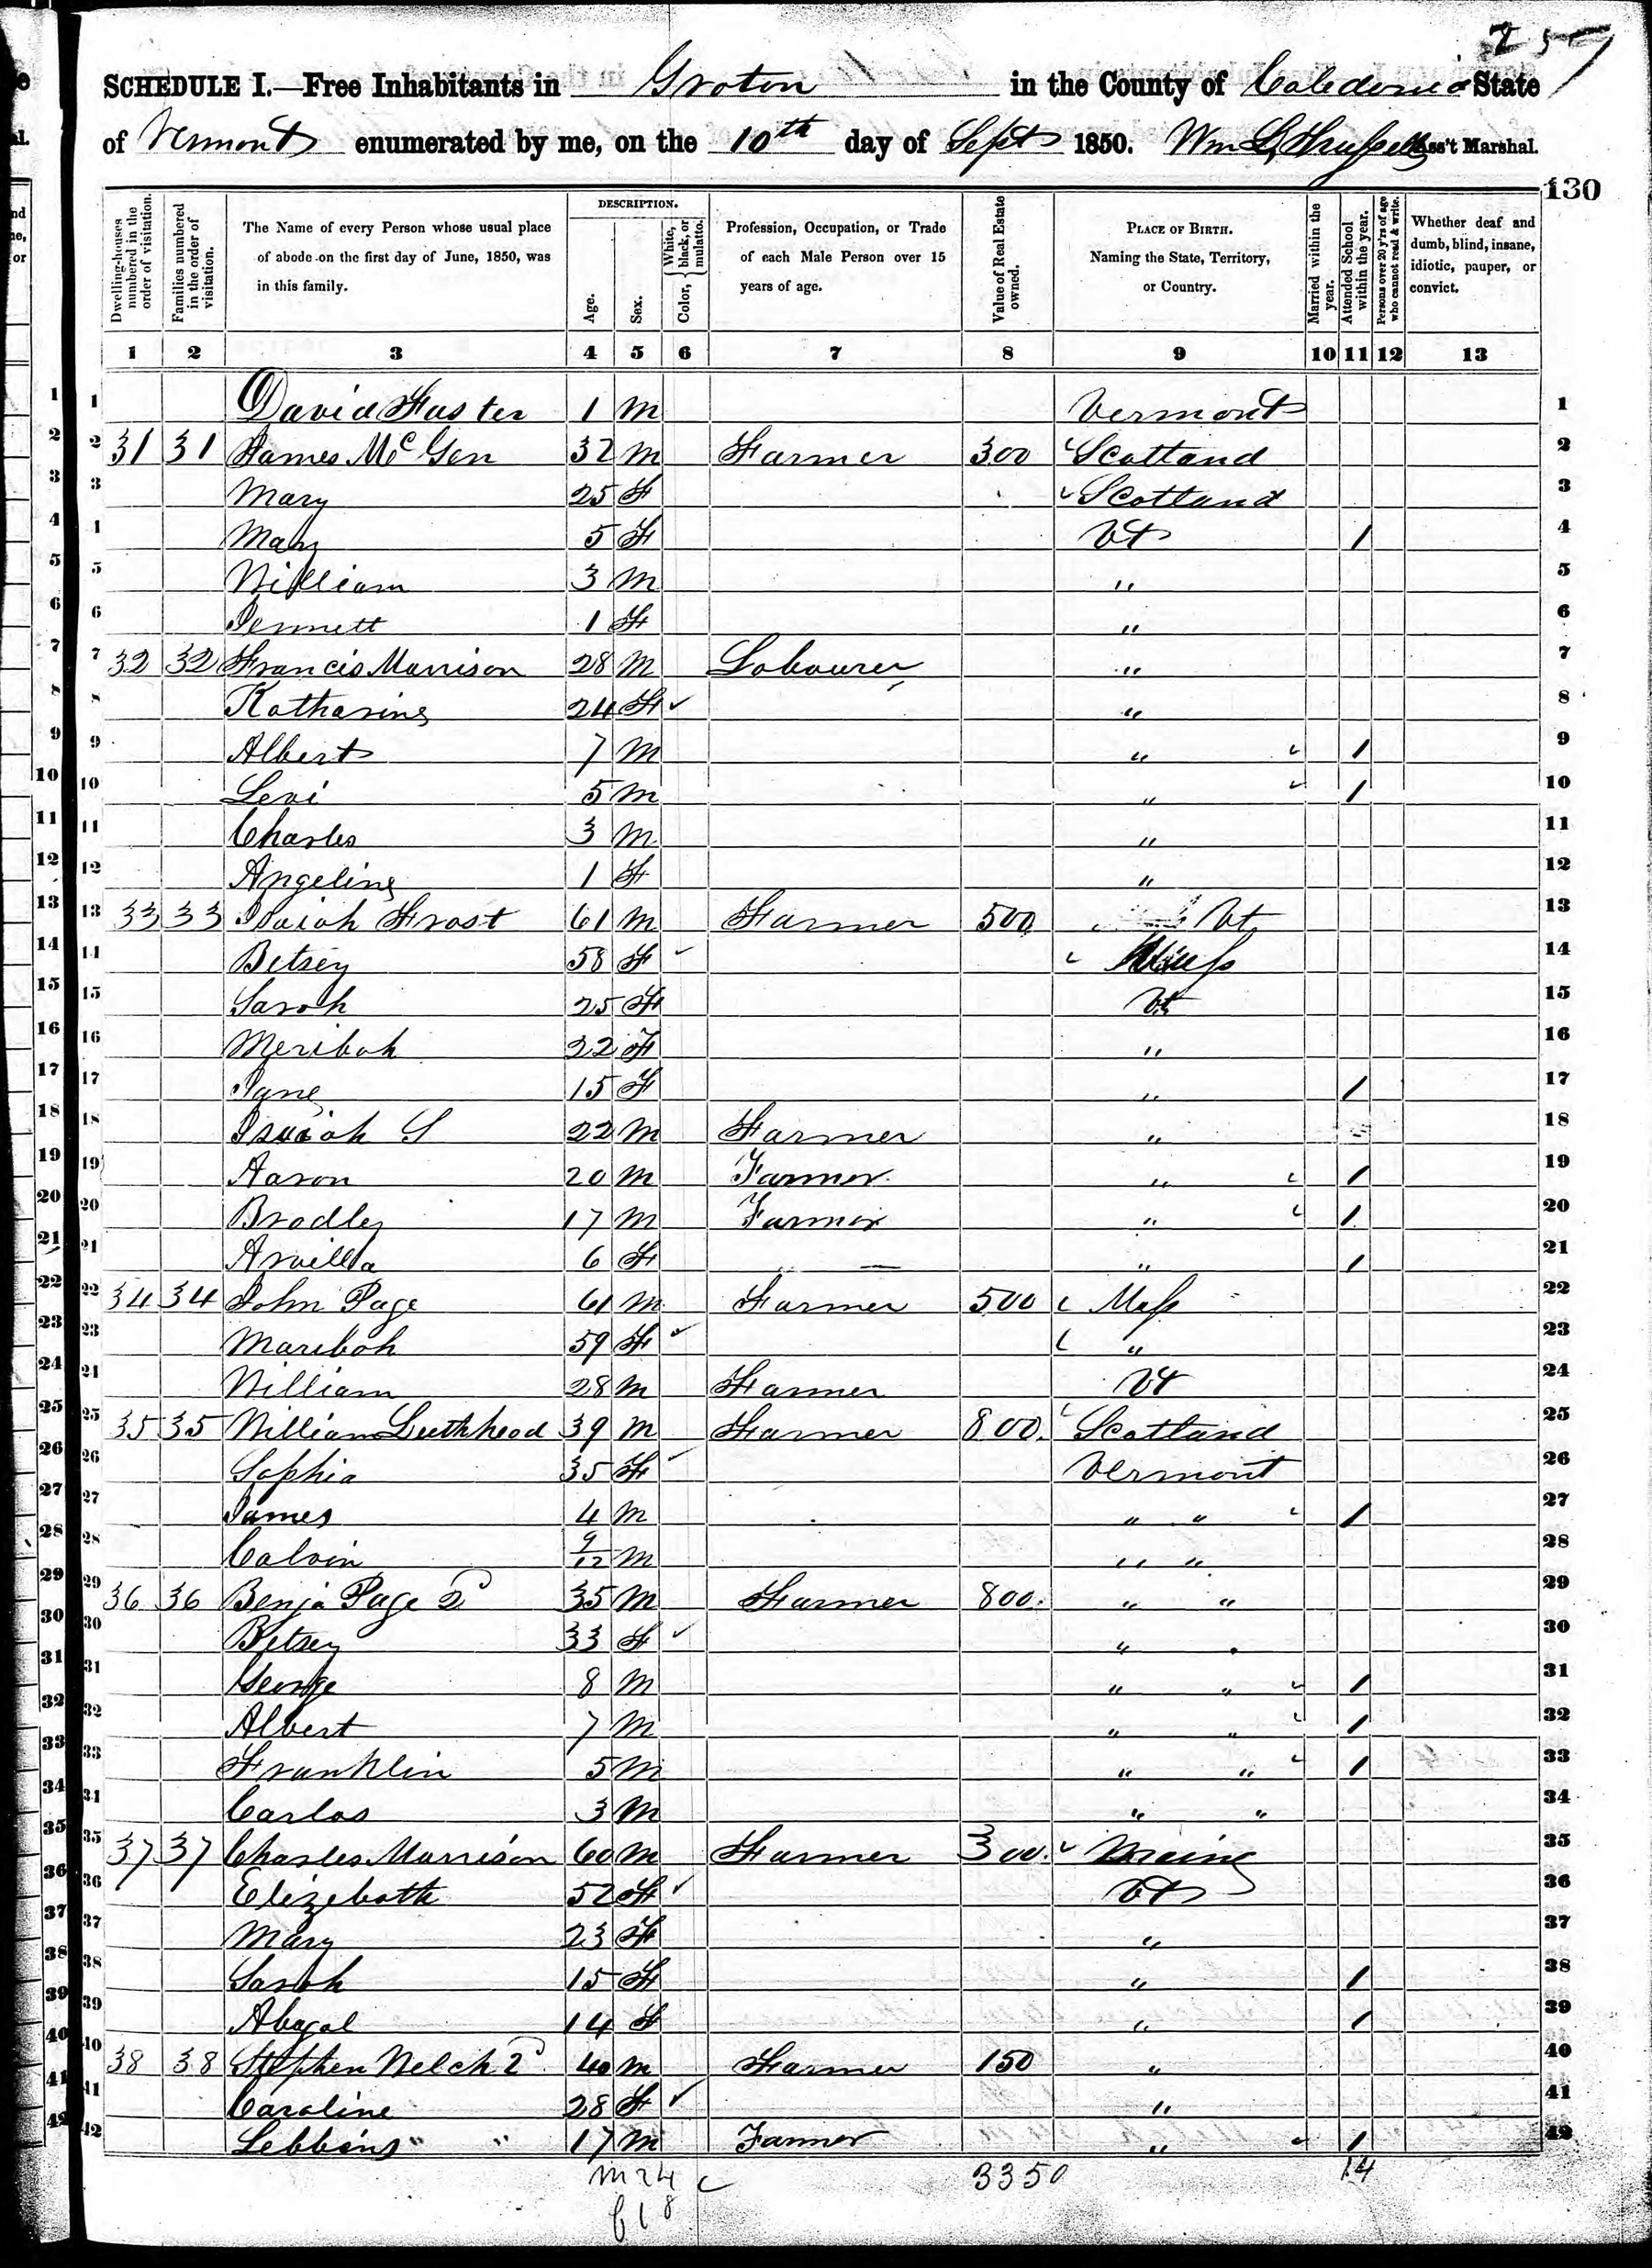 257
SCHEDULE I.—Free Inhabitants in Groton in the County of Caledonia State
of Vermont enumerated by me, on the 10th day of Sept 1850. Wm Ass't Marshal.
130
Dwelling-houses numbered in the order of visitation.
Families numbered in the order of visitation.
The Name of every Person whose usual place of abode on the first day of June, 1850, was in this family.
DESCRIPTION.
Age.
Sex.
Color, { White, black, or mulatto.
Profession, Occupation, or Trade of each Male Person over 15 years of age.
Value of Real Estate owned.
PLACE OF BIRTH. Naming the State, Territory, or Country.
Married within the year.
Attended School within the year.
Persons over 20 y'rs of age who cannot read & write.
Whether deaf and dumb, blind, insane, idiotic, pauper, or convict.
1 2 3 4 5 6 7 8 9 10 11 12 13
1 David Foster 1 M Vermont 1
2 31 31 James Mc Gen 32 M Farmer 300 Scotland 2
3 Mary 25 F Scotland 3
4 Mary 5 F Vt / 4
5 William 3 M " 5
6 Jennett 1 F " 6
7 32 32 Francis Morrison 28 M Labourer " 7
8 Katharine 24 F " 8
9 Albert 7 M " / 9
10 Levi 5 M " / 10
11 Charles 3 M " 11
12 Angeline 1 F " 12
13 33 33 Isaiah Frost 61 M Farmer 500 Vt 13
14 Betsey 58 F 14
15 Sarah 25 F Vt 15
16 Meribah 22 F " 16
17 Jane 15 F " / 17
18 Isaiah S 22 M Farmer " 18
19 Aaron 20 M Farmer " / 19
20 Bradley 17 M Farmer " / 20
21 Arvilla 6 F — " / 21
22 34 34 John Page 61 M Farmer 500 Mass 22
23 Maribah 59 F " 23
24 William 28 M Farmer Vt 24
25 35 35 William Leethhead 39 M Farmer 800 Scotland 25
26 Sophia 35 F Vermont 26
27 James 4 M " " / 27
28 Calvin 9/12 M " " 28
29 36 36 Benja Page 2d 35 M Farmer 800 " " 29
30 Betsey 33 F " " 30
31 George 8 M " " / 31
32 Albert 7 M " " / 32
33 Franklin 5 M " " / 33
34 Carlos 3 M " " 34
35 37 37 Charles Morrison 60 M Farmer 300 Maine 35
36 Elizebath 52 F Vt 36
37 Mary 23 F " 37
38 Sarah 15 F " / 38
39 Abagal 14 F " / 39
40 38 38 Stephen Welch 2d 40 M Farmer 150 " 40
41 Caroline 28 F " 41
42 Lebbens " " 17 M Farmer " / 42
m 24 3350 14
f 18